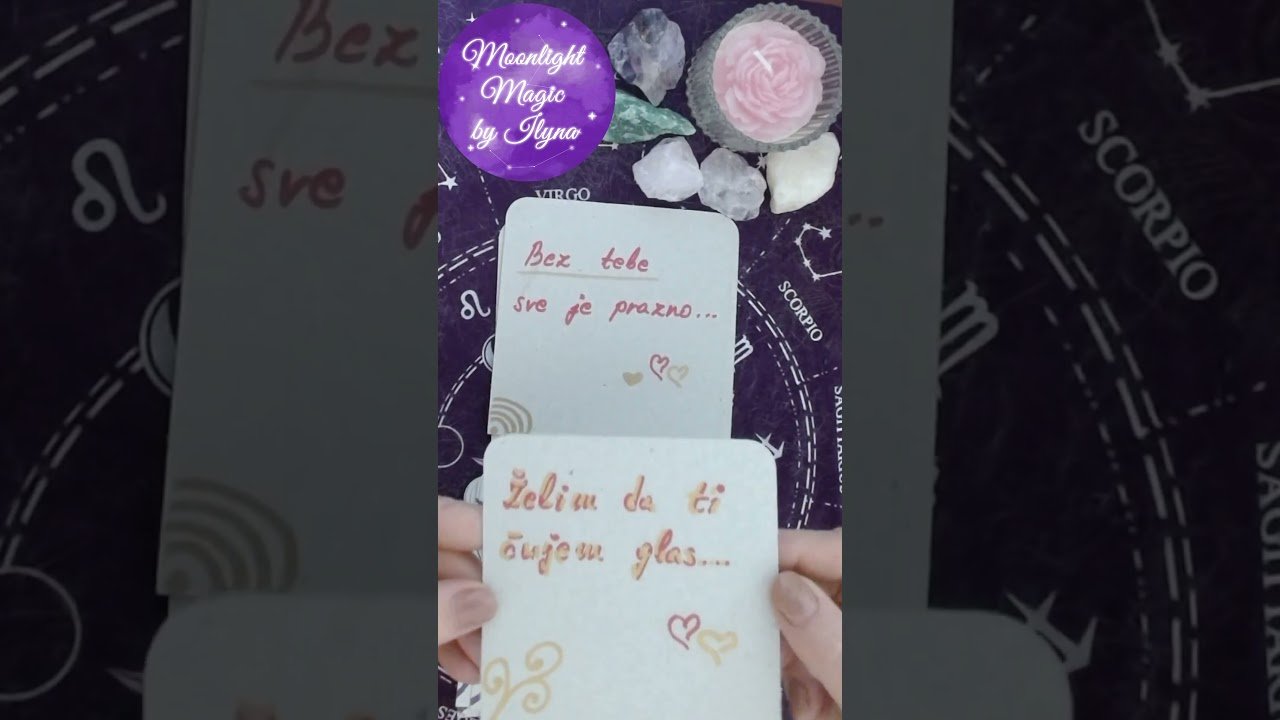 Moonlight
Magic
by Ilyna
VIRGO
SCORPIO
Bez tebe
sve je prazno...
Želim da ti
čujem glas...
Bez
sve
SCORPIO